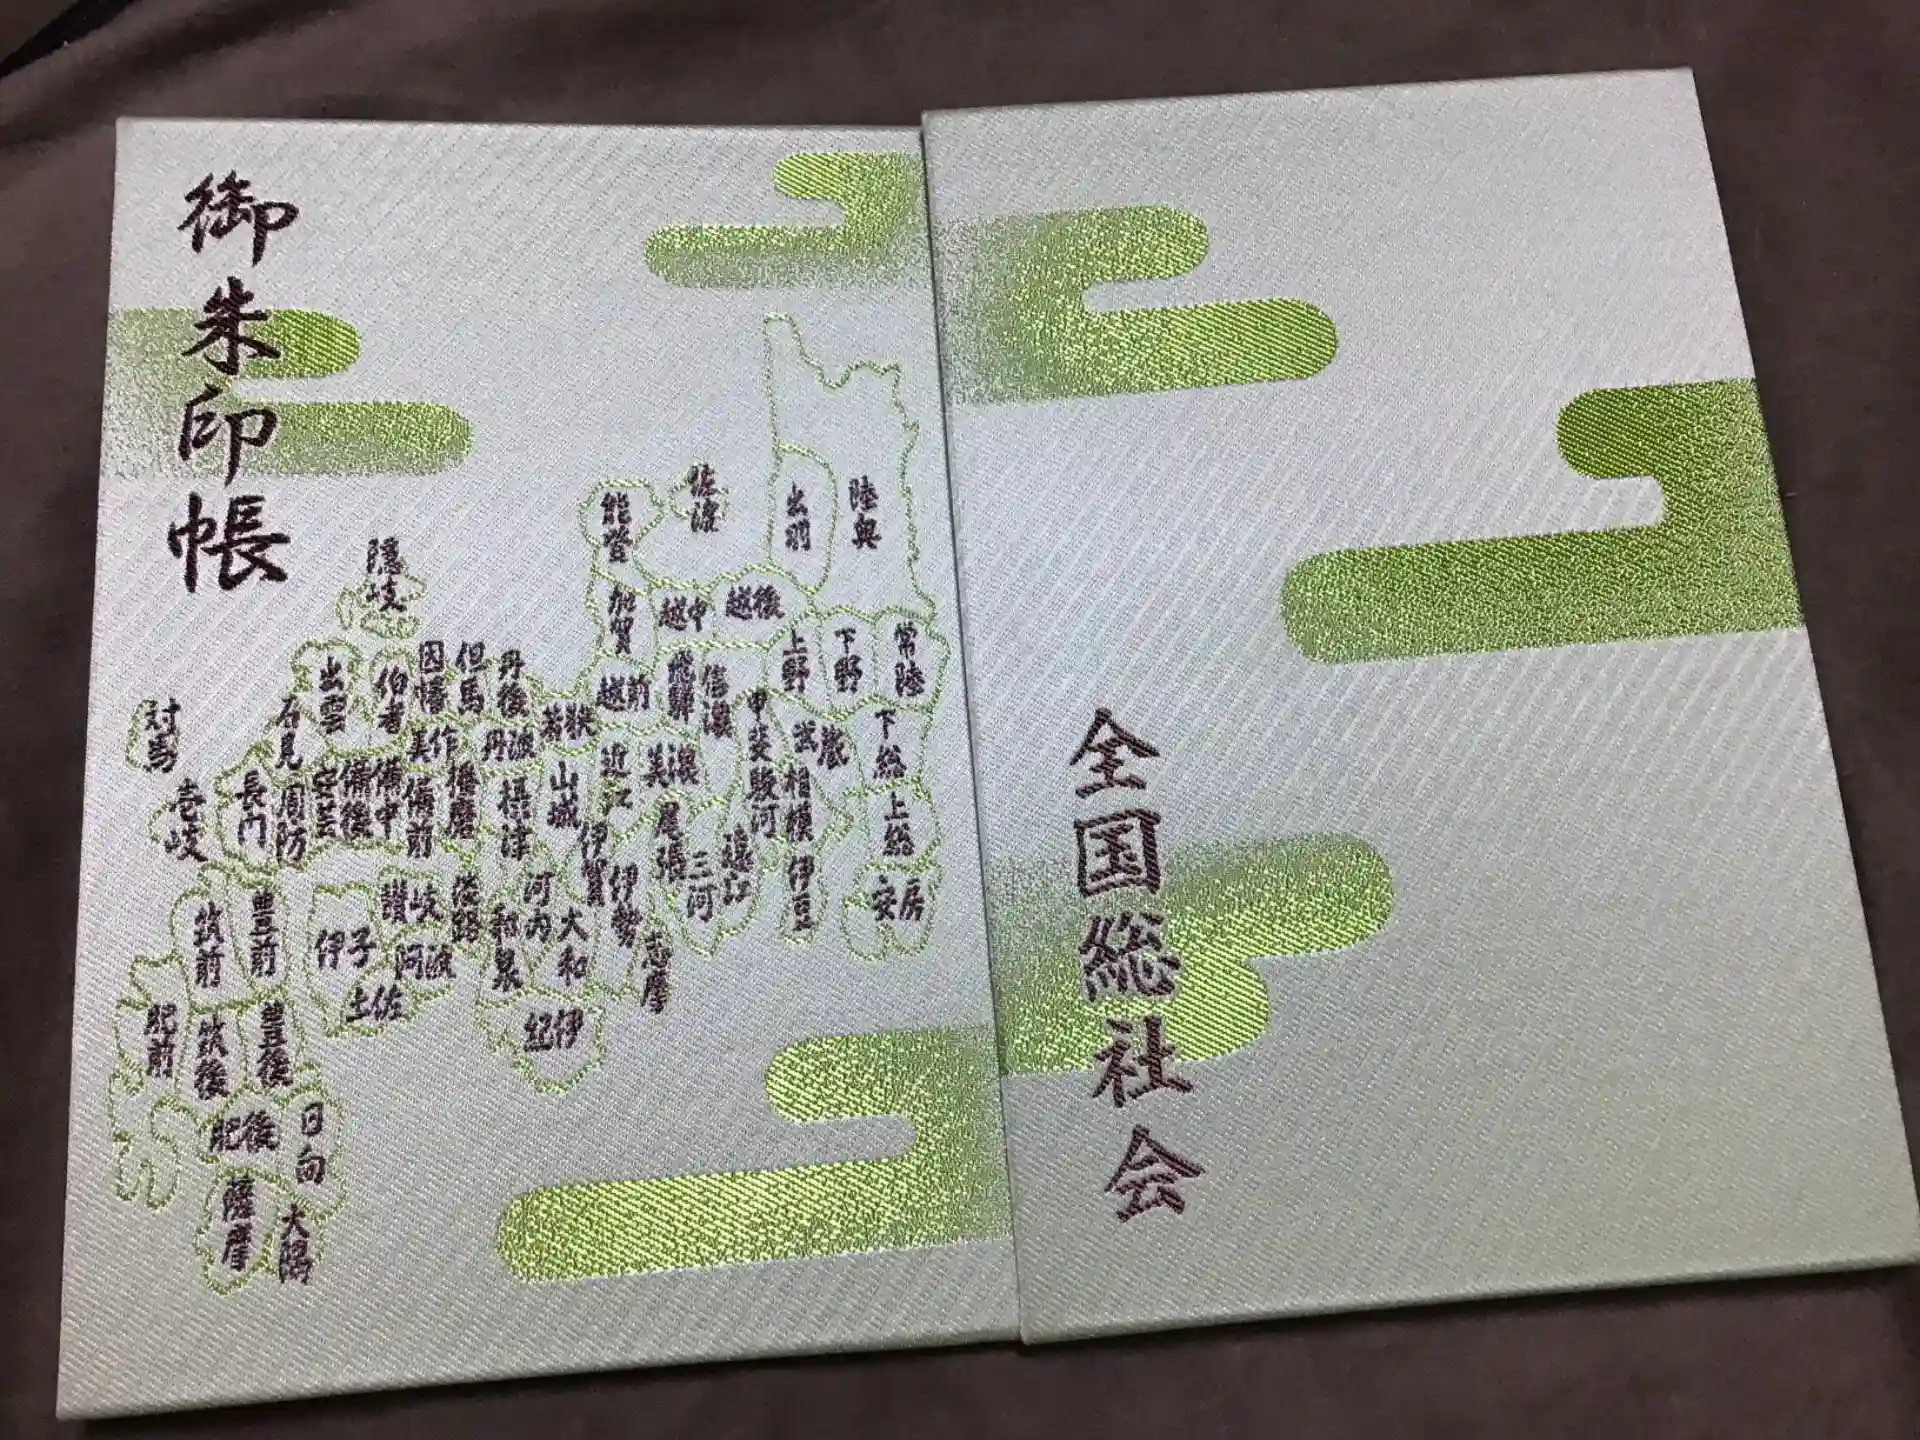 御朱印帳
陸奥
出羽
佐渡
能登
加賀
越中
越後
上野
下野
常陸
越前
飛騨
信濃
甲斐
武蔵
下総
上総
安房
相模
伊豆
駿河
遠江
三河
尾張
美濃
近江
若狭
山城
伊賀
伊勢
志摩
大和
紀伊
河内
和泉
摂津
丹波
丹後
但馬
因幡
伯耆
隠岐
出雲
石見
美作
播磨
備前
備中
備後
安芸
周防
長門
淡路
讃岐
阿波
伊予
土佐
対馬
壱岐
豊前
筑前
肥前
筑後
豊後
肥後
日向
薩摩
大隅
全国総社会